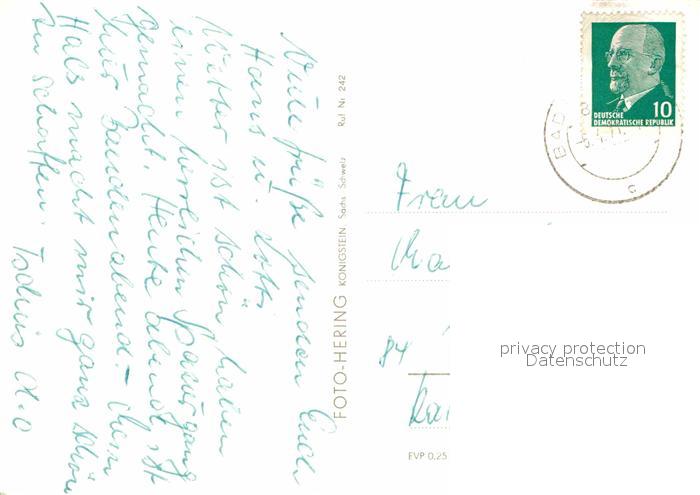 Viele Grüße senden Euch
Hans u. Lotti
Wetter ist schön haben
einen herrlichen Spaziergang
gemacht. Heute abend ist
hier Bauden abend. - Mein
Hals macht mir ganz schön
zu schaffen. Tschüs
FOTO-HERING KÖNIGSTEIN, Sächs. Schweiz Ruf Nr. 242
10
DEUTSCHE
DEMOKRATISCHE REPUBLIK
BAD
c
Frau
84
EVP 0,25
privacy protection
Datenschutz